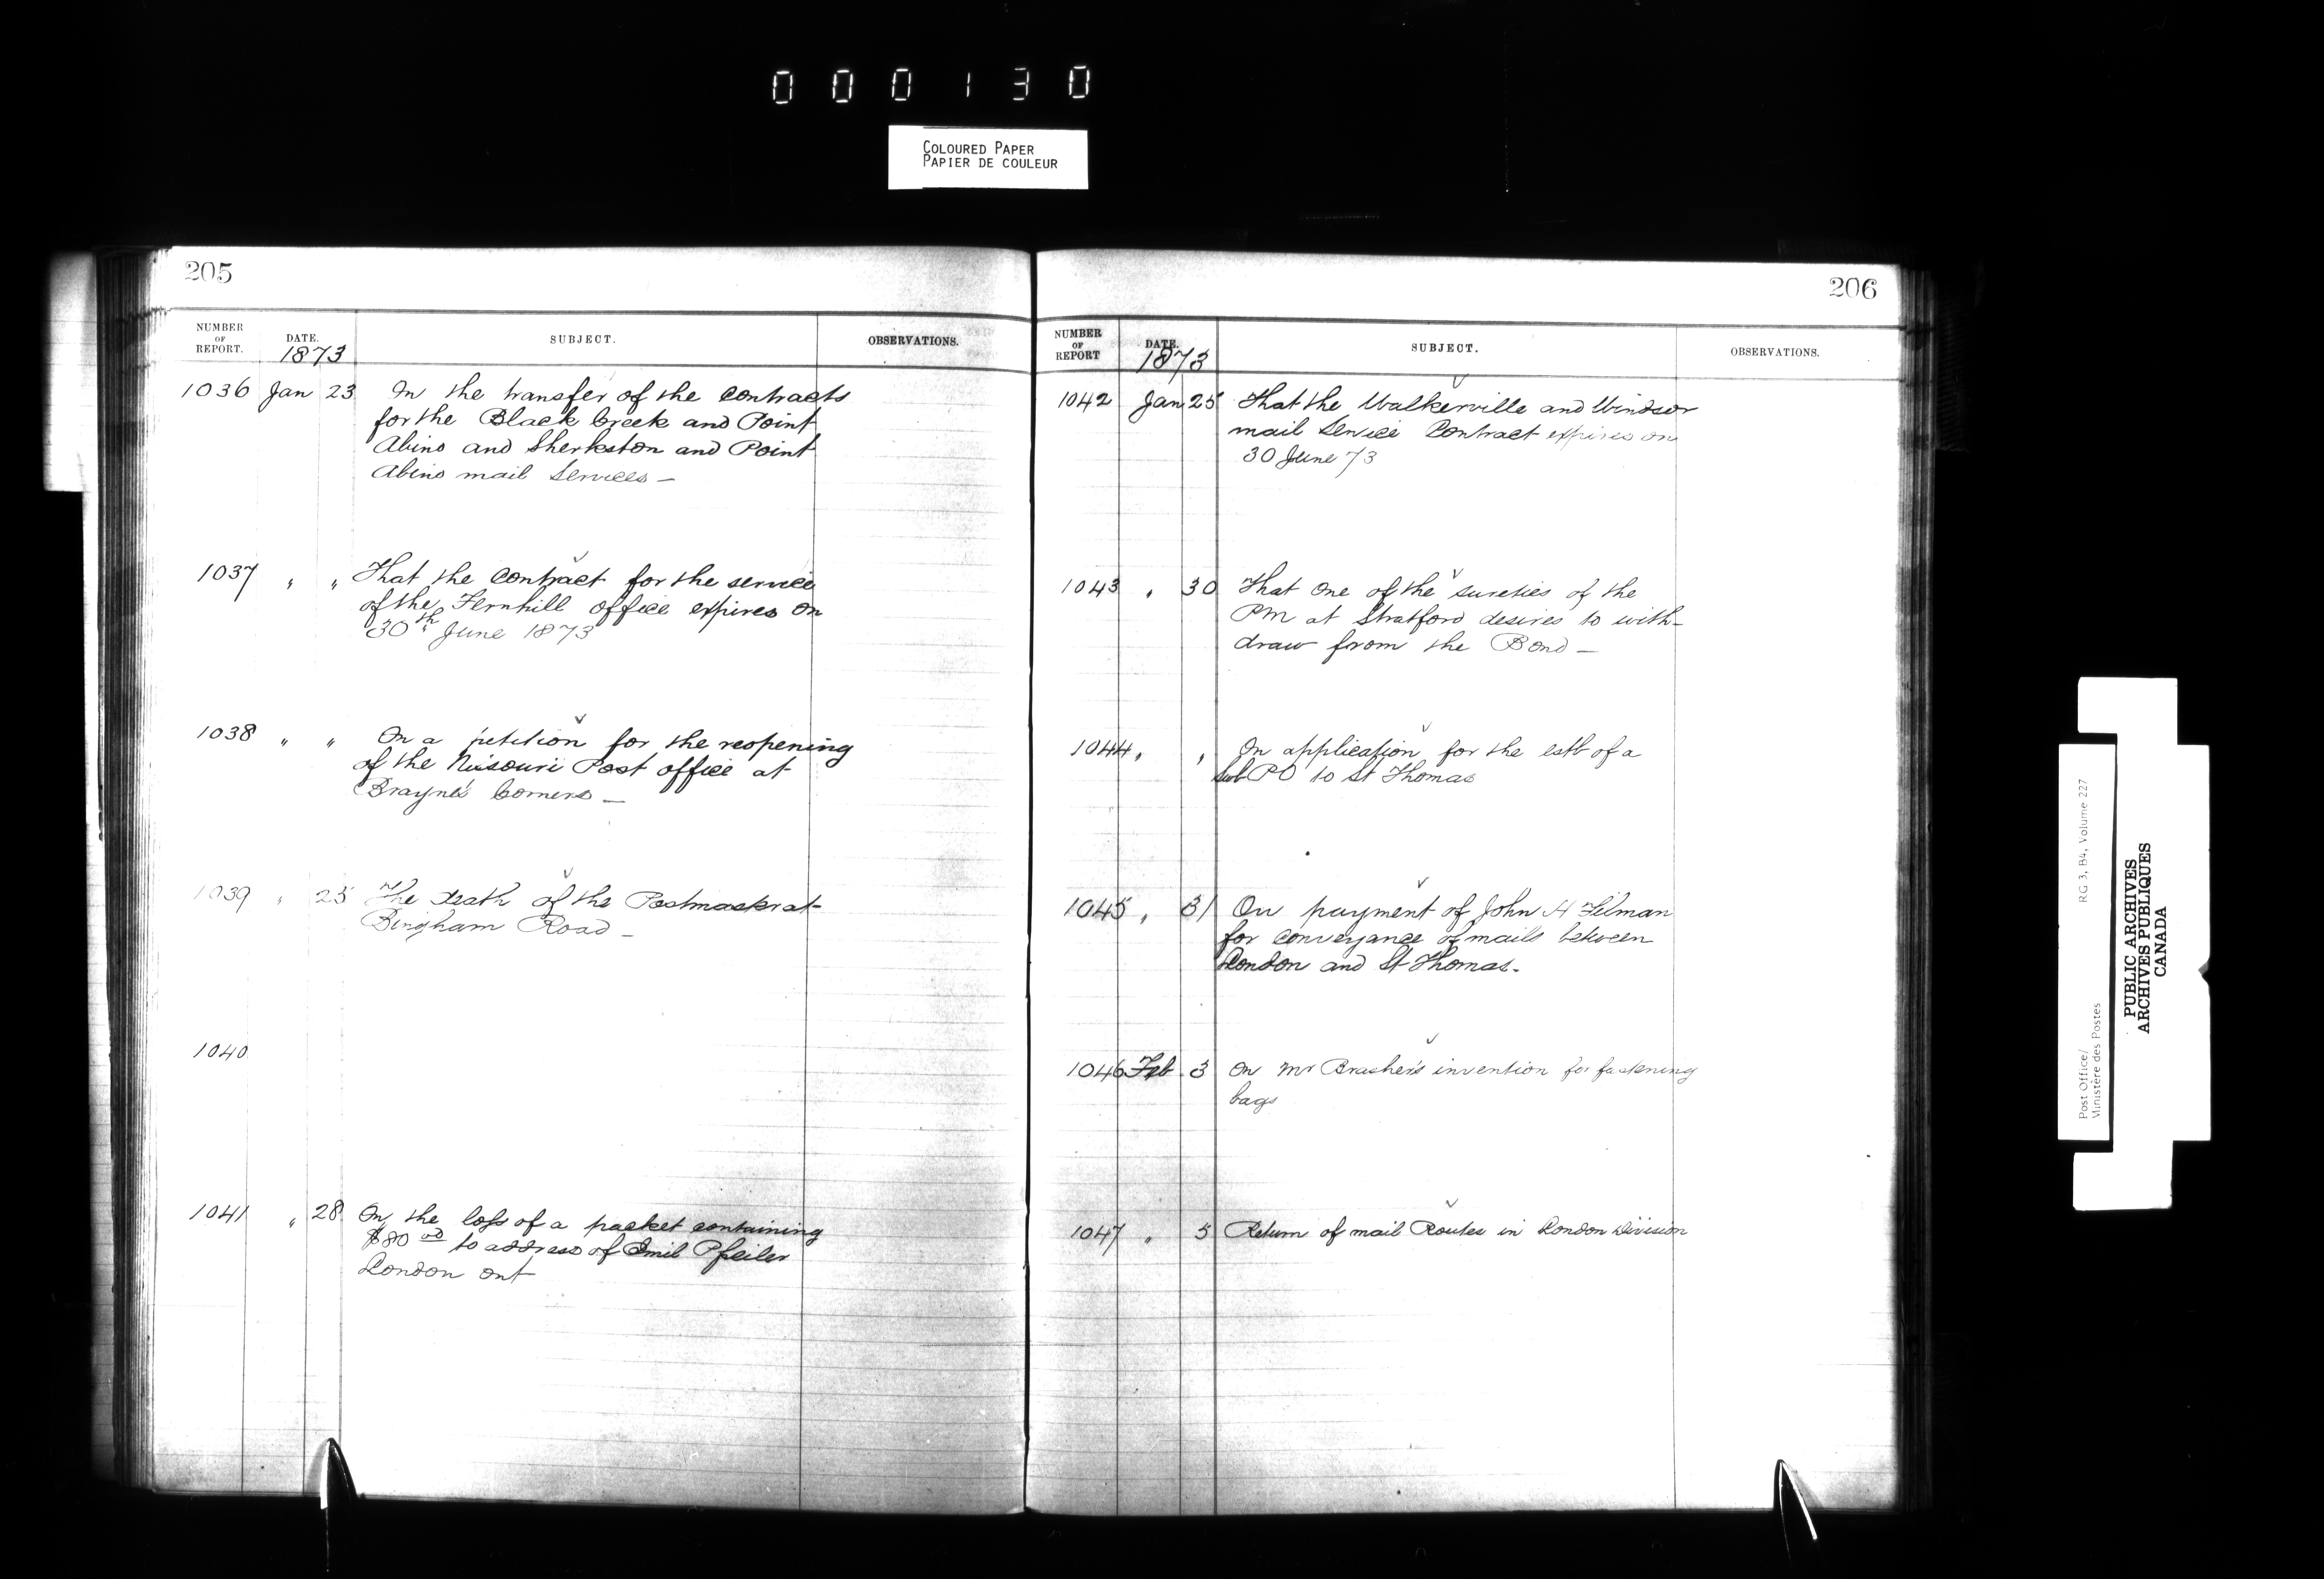 000130
COLOURED PAPER
PAPIER DE COULEUR
205
NUMBER OF REPORT. DATE. SUBJECT. OBSERVATIONS.
1873
1036 Jan 23 On the transfer of the contracts
for the Black Creek and Point
Abino and Sherkston and Point
Abino mail Services —
1037 " " That the contract for the service
of the Fernhill office expires on
30th June 1873
1038 " " On a petition for the reopening
of the Nissouri Post office at
Brayne's Corners —
1039 " 25 The death of the Postmaster at
Bingham Road —
1040
1041 " 28 On the loss of a packet containing
$80 00 to address of Emil Pfeiler
London Ont
206
NUMBER OF REPORT DATE. SUBJECT. OBSERVATIONS.
1873
1042 Jan 25 That the Walkerville and Windsor
mail Service Contract expires on
30 June 73
1043 " 30 That One of the sureties of the
PM at Stratford desires to with-
draw from the Bond —
1044 " " On application for the estb of a
Sub PO to St Thomas
1045 " 31 On payment of John H Filman
for conveyance of mails between
London and St Thomas.
1046 Feb 3 On Mr Brasher's invention for fastening
bags
1047 " 5 Return of mail Routes in London Division
Post Office/ RG 3, B4, Volume 227
Ministère des Postes
PUBLIC ARCHIVES
ARCHIVES PUBLIQUES
CANADA